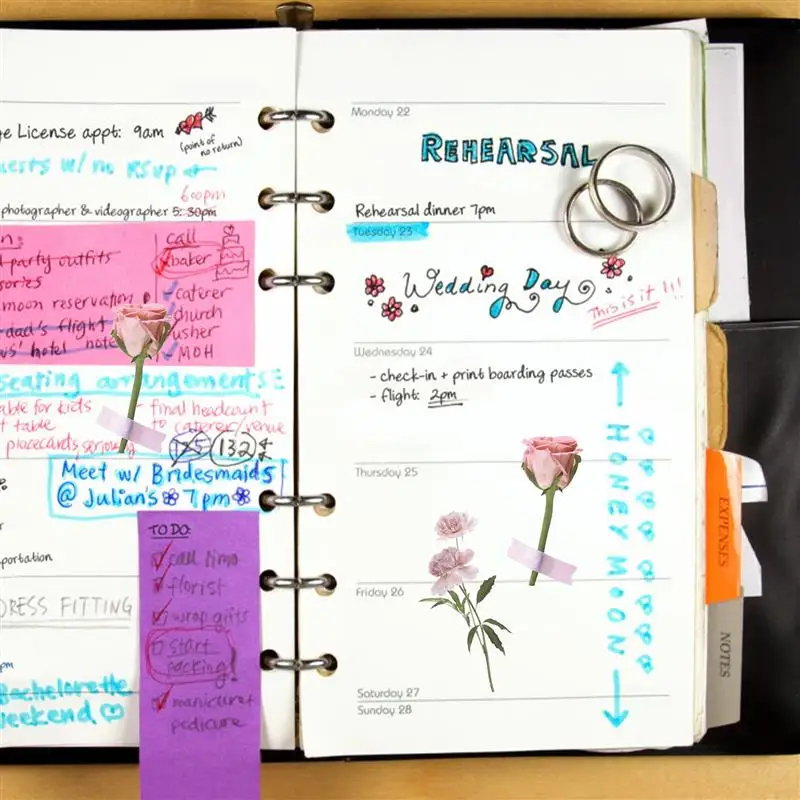 License appt: 9am
(point of
no return)
w/ no RSVP
6:00pm
photographer & videographer 5:30pm
party outfits
moon reservation
dad's flight
hotel
call
baker
caterer
church
usher
MOH
seating arrangements
able for kids
table
placecards, seriously
final headcount
to caterer/venue
125 132
Meet w/ Bridesmaids
@ Julian's 7pm
portation
DRESS FITTING
pm
Bachelorette
Weekend
TO DO:
call limo
florist
wrap gifts
start
packing!
manicure+
pedicure
Monday 22
REHEARSAL
Rehearsal dinner 7pm
Tuesday 23
Wedding Day
This is it!!!
Wednesday 24
- check-in + print boarding passes
- flight: 2pm
Thursday 25
Friday 26
Saturday 27
Sunday 28
HONEYMOON
EXPENSES
NOTES